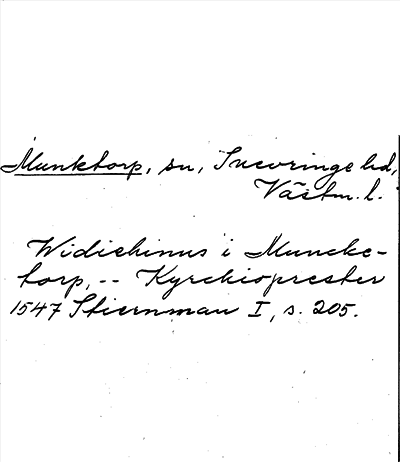 Munktorp, sn, Snevringe hd,
Västm. l.
Widichinus i Muncke-
torp, -- Kyrckioprester
1547 Stiernman I, s. 205.